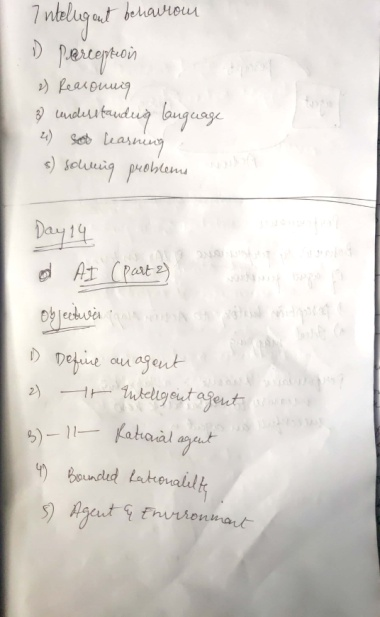 Intelligent behaviour
1) Perception
2) Reasoning
3) understanding language
4) learning
5) solving problems
Day 14
AI (Part 2)
Objectives:
1) Define an agent
2) —11— Intelligent agent
3) —11— Rational agent
4) Bounded Rationality
5) Agent & Environment